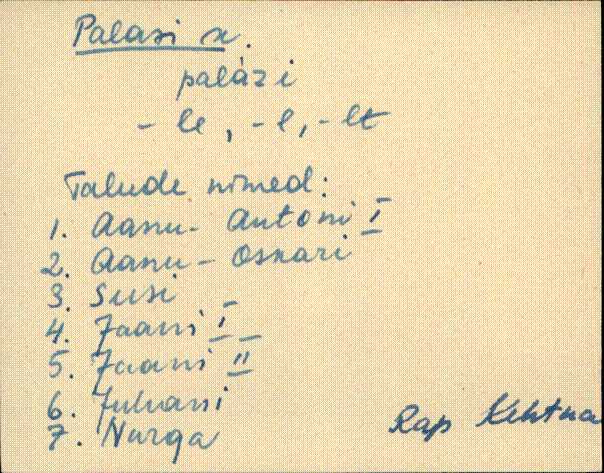 Palasi k.
palàzi
- le, - l, - lt
Talude nimed:
1. Aanu - Antoni I
2. Aanu - Oskari
3. Susi
4. Jaani I
5. Jaani II
6. Juhani
7. Nurga
Rap Kehtna